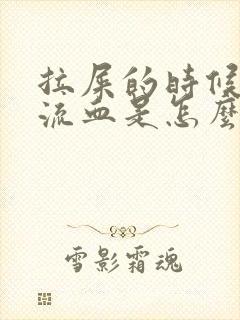 拉屎的時候
流血是怎麼
雪影霜魂